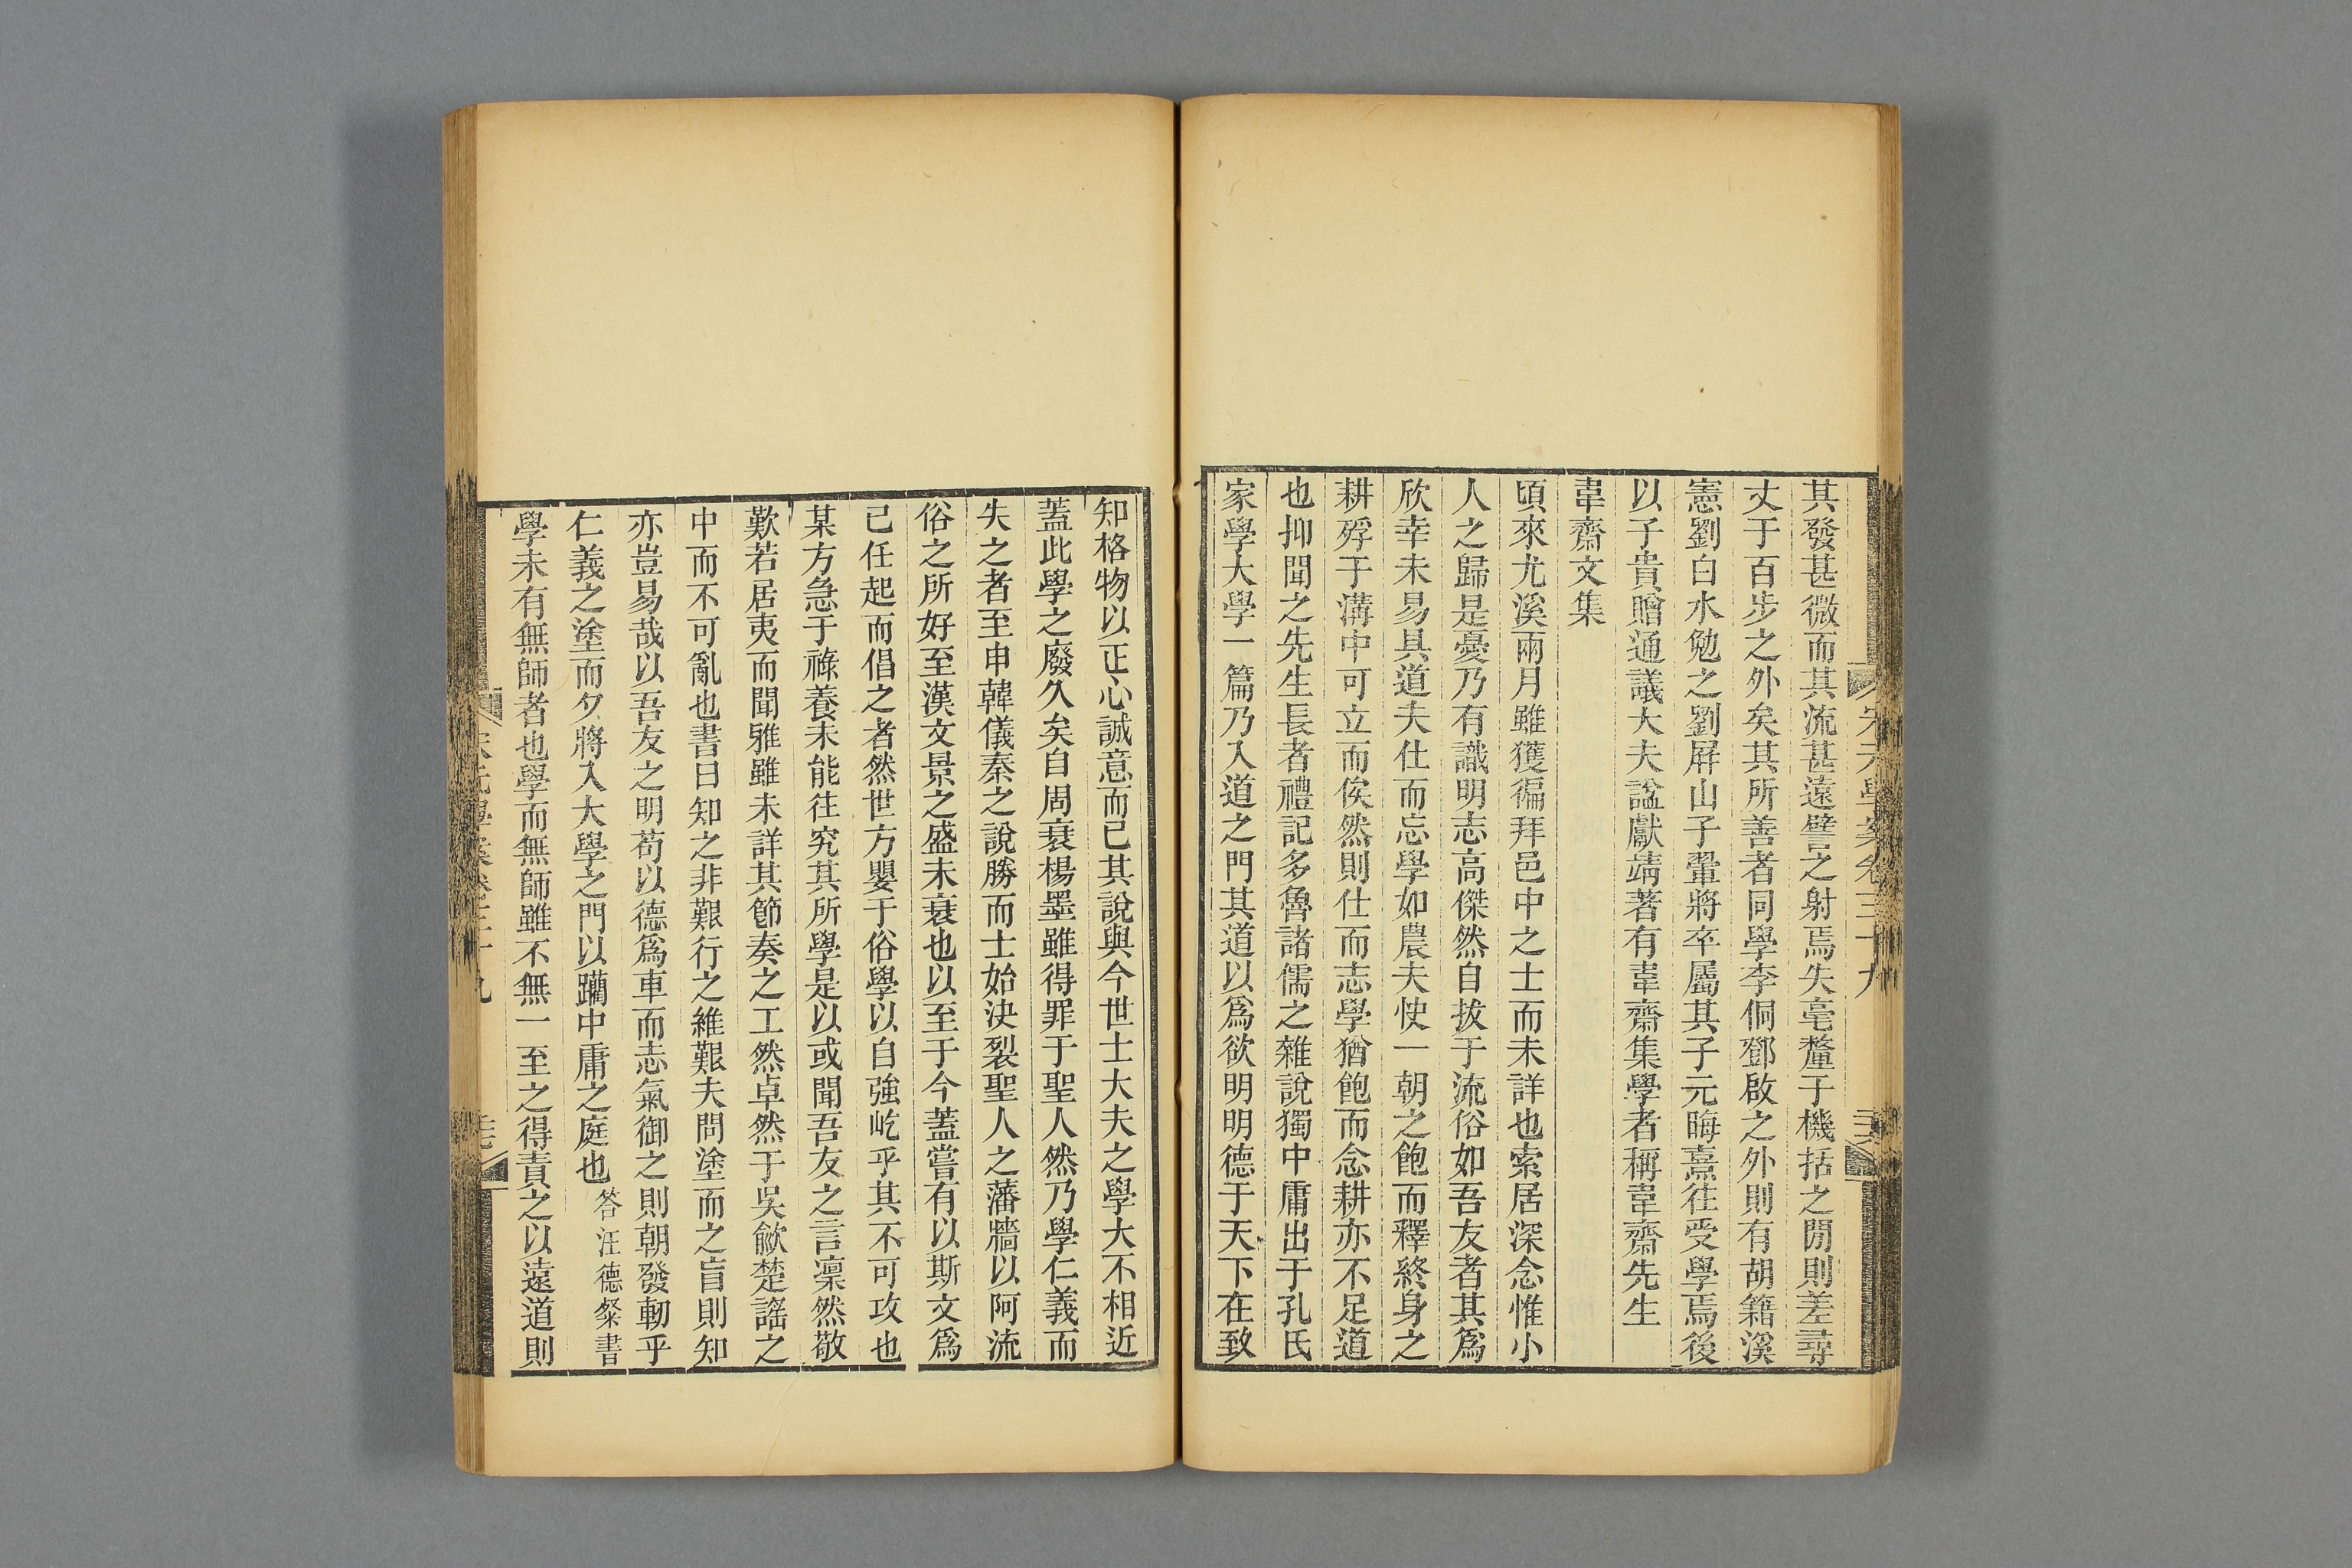 宋元學案卷三十九
其發甚微而其流甚遠譬之射焉失毫釐于機括之閒則差尋
丈于百步之外矣其所善者同學李侗鄧啟之外則有胡籍溪
憲劉白水勉之劉屛山子翬將卒屬其子元晦熹往受學焉後
以子貴贈通議大夫諡獻靖著有韋齋集學者稱韋齋先生
韋齋文集
頃來尤溪兩月雖獲徧拜邑中之士而未詳也索居深念惟小
人之歸是憂乃有識明志高傑然自拔于流俗如吾友者其爲
欣幸未易具道夫仕而忘學如農夫怏一朝之飽而釋終身之
耕殍于溝中可立而俟然則仕而志學猶飽而念耕亦不足道
也抑聞之先生長者禮記多魯諸儒之雜說獨中庸出于孔氏
家學大學一篇乃入道之門其道以爲欲明明德于天下在致
知格物以正心誠意而已其說與今世士大夫之學大不相近
蓋此學之廢久矣自周衰楊墨雖得罪于聖人然乃學仁義而
失之者至申韓儀秦之說勝而士始決裂聖人之藩牆以阿流
俗之所好至漢文景之盛未衰也以至于今蓋嘗有以斯文爲
己任起而倡之者然世方嬰于俗學以自強屹乎其不可攻也
某方急于祿養未能往究其所學是以或聞吾友之言凜然敬
歎若居夷而聞雅雖未詳其節奏之工然卓然于吳歈楚謠之
中而不可亂也書曰知之非艱行之維艱夫問塗而之盲則知
亦豈易哉以吾友之明苟以德爲車而志氣御之則朝發軔乎
仁義之塗而夕將入大學之門以躪中庸之庭也答汪德粲書
學未有無師者也學而無師雖不無一至之得責之以遠道則
宋元學案卷三十九